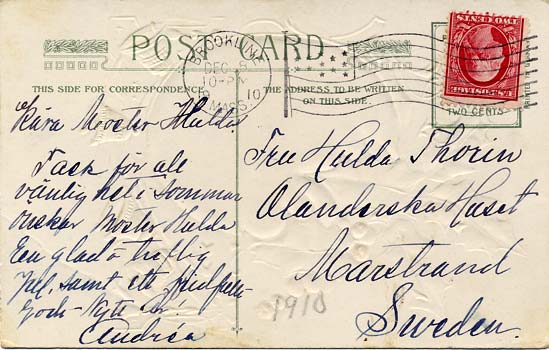 POST CARD
THIS SIDE FOR CORRESPONDENCE
THE ADDRESS TO BE WRITTEN
ON THIS SIDE.
BROOKLINE
DEC 8
10-PM
1910
MASS.
U.S. POSTAGE
TWO CENTS
TWO CENTS
Kära Moster Hulda
Tack för all
vänlighet i Sommar
önskar Moster Hulda
En glad o treflig
Jul, samt ett
Godt Nytt År!
Andréa
Fru Hulda Thorin
Olanderska Huset
Marstrand
Sweden.
1910